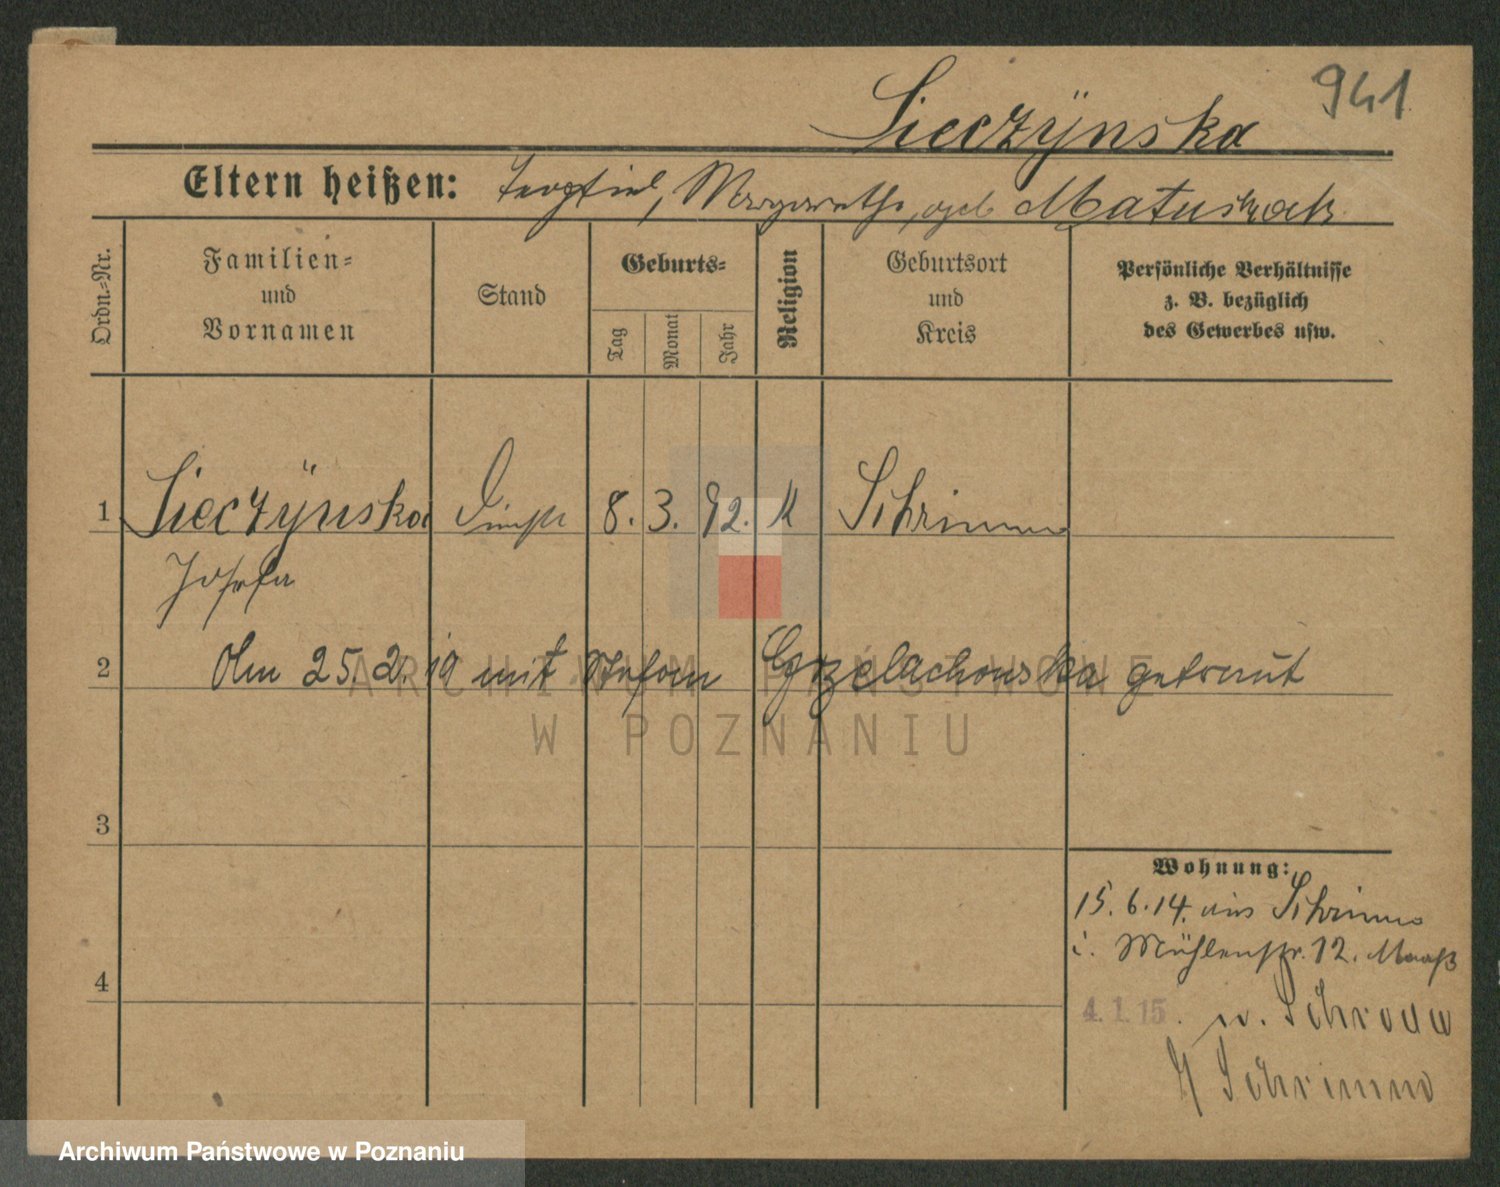 941
Sieczÿnska
Eltern heißen: Teofiel, Margarethe, geb Matuszak
Ordn.-Nr.
Familien-
und
Vornamen
Stand
Geburts-
Tag
Monat
Jahr
Religion
Geburtsort
und
Kreis
Persönliche Verhältnisse
z. B. bezüglich
des Gewerbes usw.
1 Sieczÿnska 8. 3. 92. K Schrimm
Josefa
2 Am 25.2.19 mit Stefan Grzelachowska getraut
3
4
Wohnung:
15.6.14. aus Schrimm
i. Mühlenstr. 12.
4.1.15. n. Schroda
Schrimm
ARCHIWUM PAŃSTWOWE
W POZNANIU
Archiwum Państwowe w Poznaniu